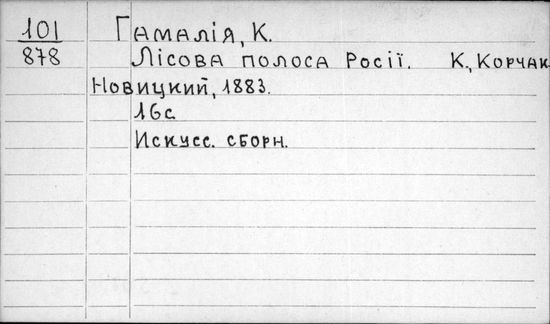 101 Гамалія, К.
878 Лісова полоса Росії. К., Корчак
Новицкий, 1883.
16с.
Искусс. сборн.